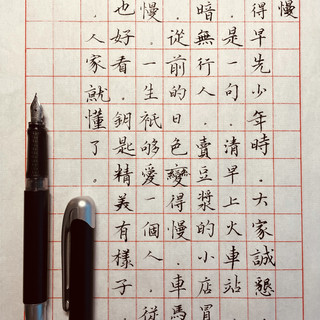 慢
得早先少年時．大家誠懇
是一句．清早上火車站．
暗無行人．賣豆漿的小店冒
．從前的日色變得慢．車馬
慢．一生衹够愛一個人．從
也好看．鑰匙精美有樣子．
．人家就懂了．